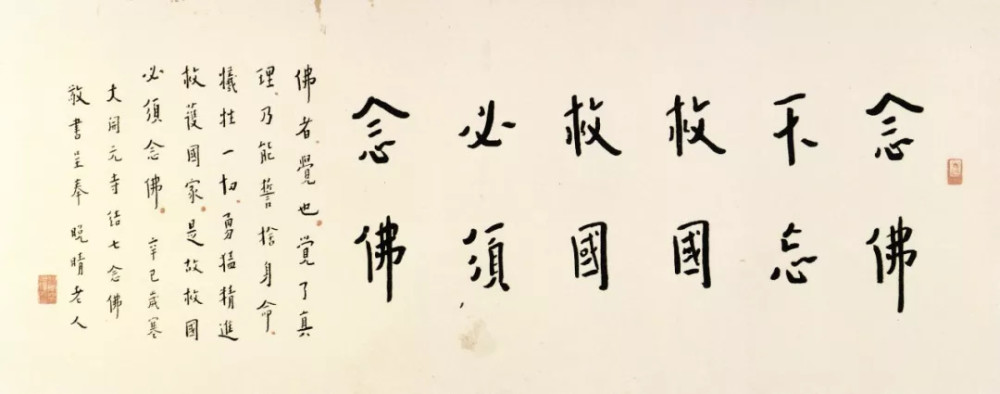 念佛
不忘
救國
救國
必須
念佛
佛者。覺也。覺了真
理。乃能誓捨身命。
犧牲一切。勇猛精進
救護國家。是故救國
必須念佛。辛巳歲寒
大開元寺結七念佛
敬書呈奉 晚晴老人